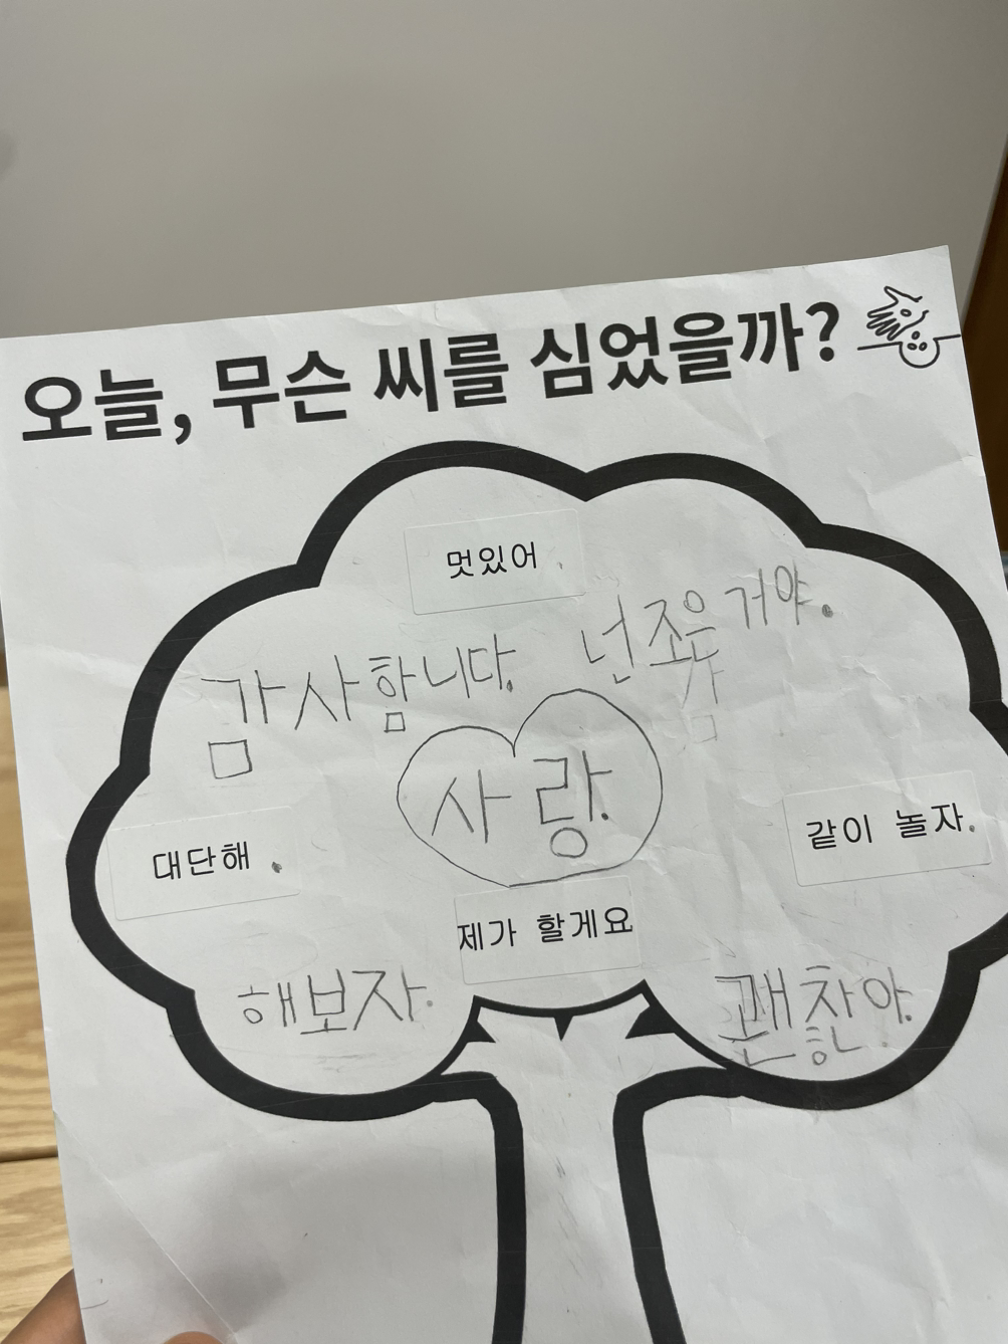 오늘, 무슨 씨를 심었을까?
멋있어
감사합니다. 넌 조은 거야.
사랑.
대단해.
같이 놀자.
제가 할게요
해보자.
괜찬아.